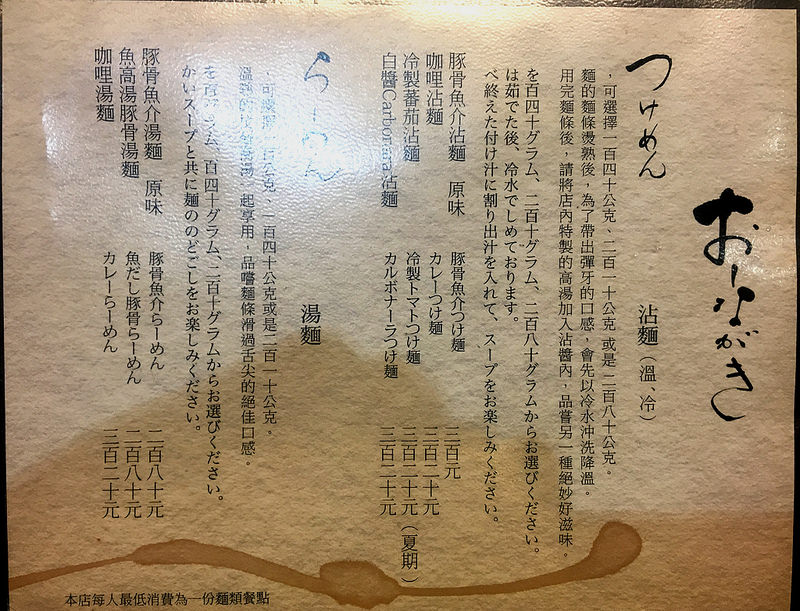 おーながき
つけめん
沾麵（溫、冷）
，可選擇一百四十公克、二百一十公克 或是 二百八十公克。
麵的麵條燙熟後，為了帶出彈牙的口感，會先以冷水沖洗降溫。
用完麵條後，請將店內特製的高湯加入沾醬內，品嘗另一種絕妙好滋味。
を百四十グラム、二百十グラム、二百八十グラムからお選びください。
は茹でた後、冷水でしめております。
べ終えた付け汁に割り出汁を入れて、スープをお楽しみください。
豚骨魚介沾麵 原味 豚骨魚介つけ麺 三百元
咖哩沾麵 カレーつけ麺 三百二十元
冷製蕃茄沾麵 冷製トマトつけ麺 三百二十元（夏期）
白醬Carbonara沾麵 カルボナーラつけ麺 三百二十元
らーめん
湯麵
，可選擇一百公克、一百四十公克或是二百一十公克。
一起享用，品嚐麵條滑過舌尖的絕佳口感。
を百グラム、百四十グラム、二百十グラムからお選びください。
かいスープと共に麺ののどごしをお楽しみください。
豚骨魚介湯麵 原味 豚骨魚介らーめん 二百八十元
魚高湯豚骨湯麵 魚だし豚骨らーめん 二百八十元
咖哩湯麵 カレーらーめん 三百二十元
本店每人最低消費為一份麵類餐點